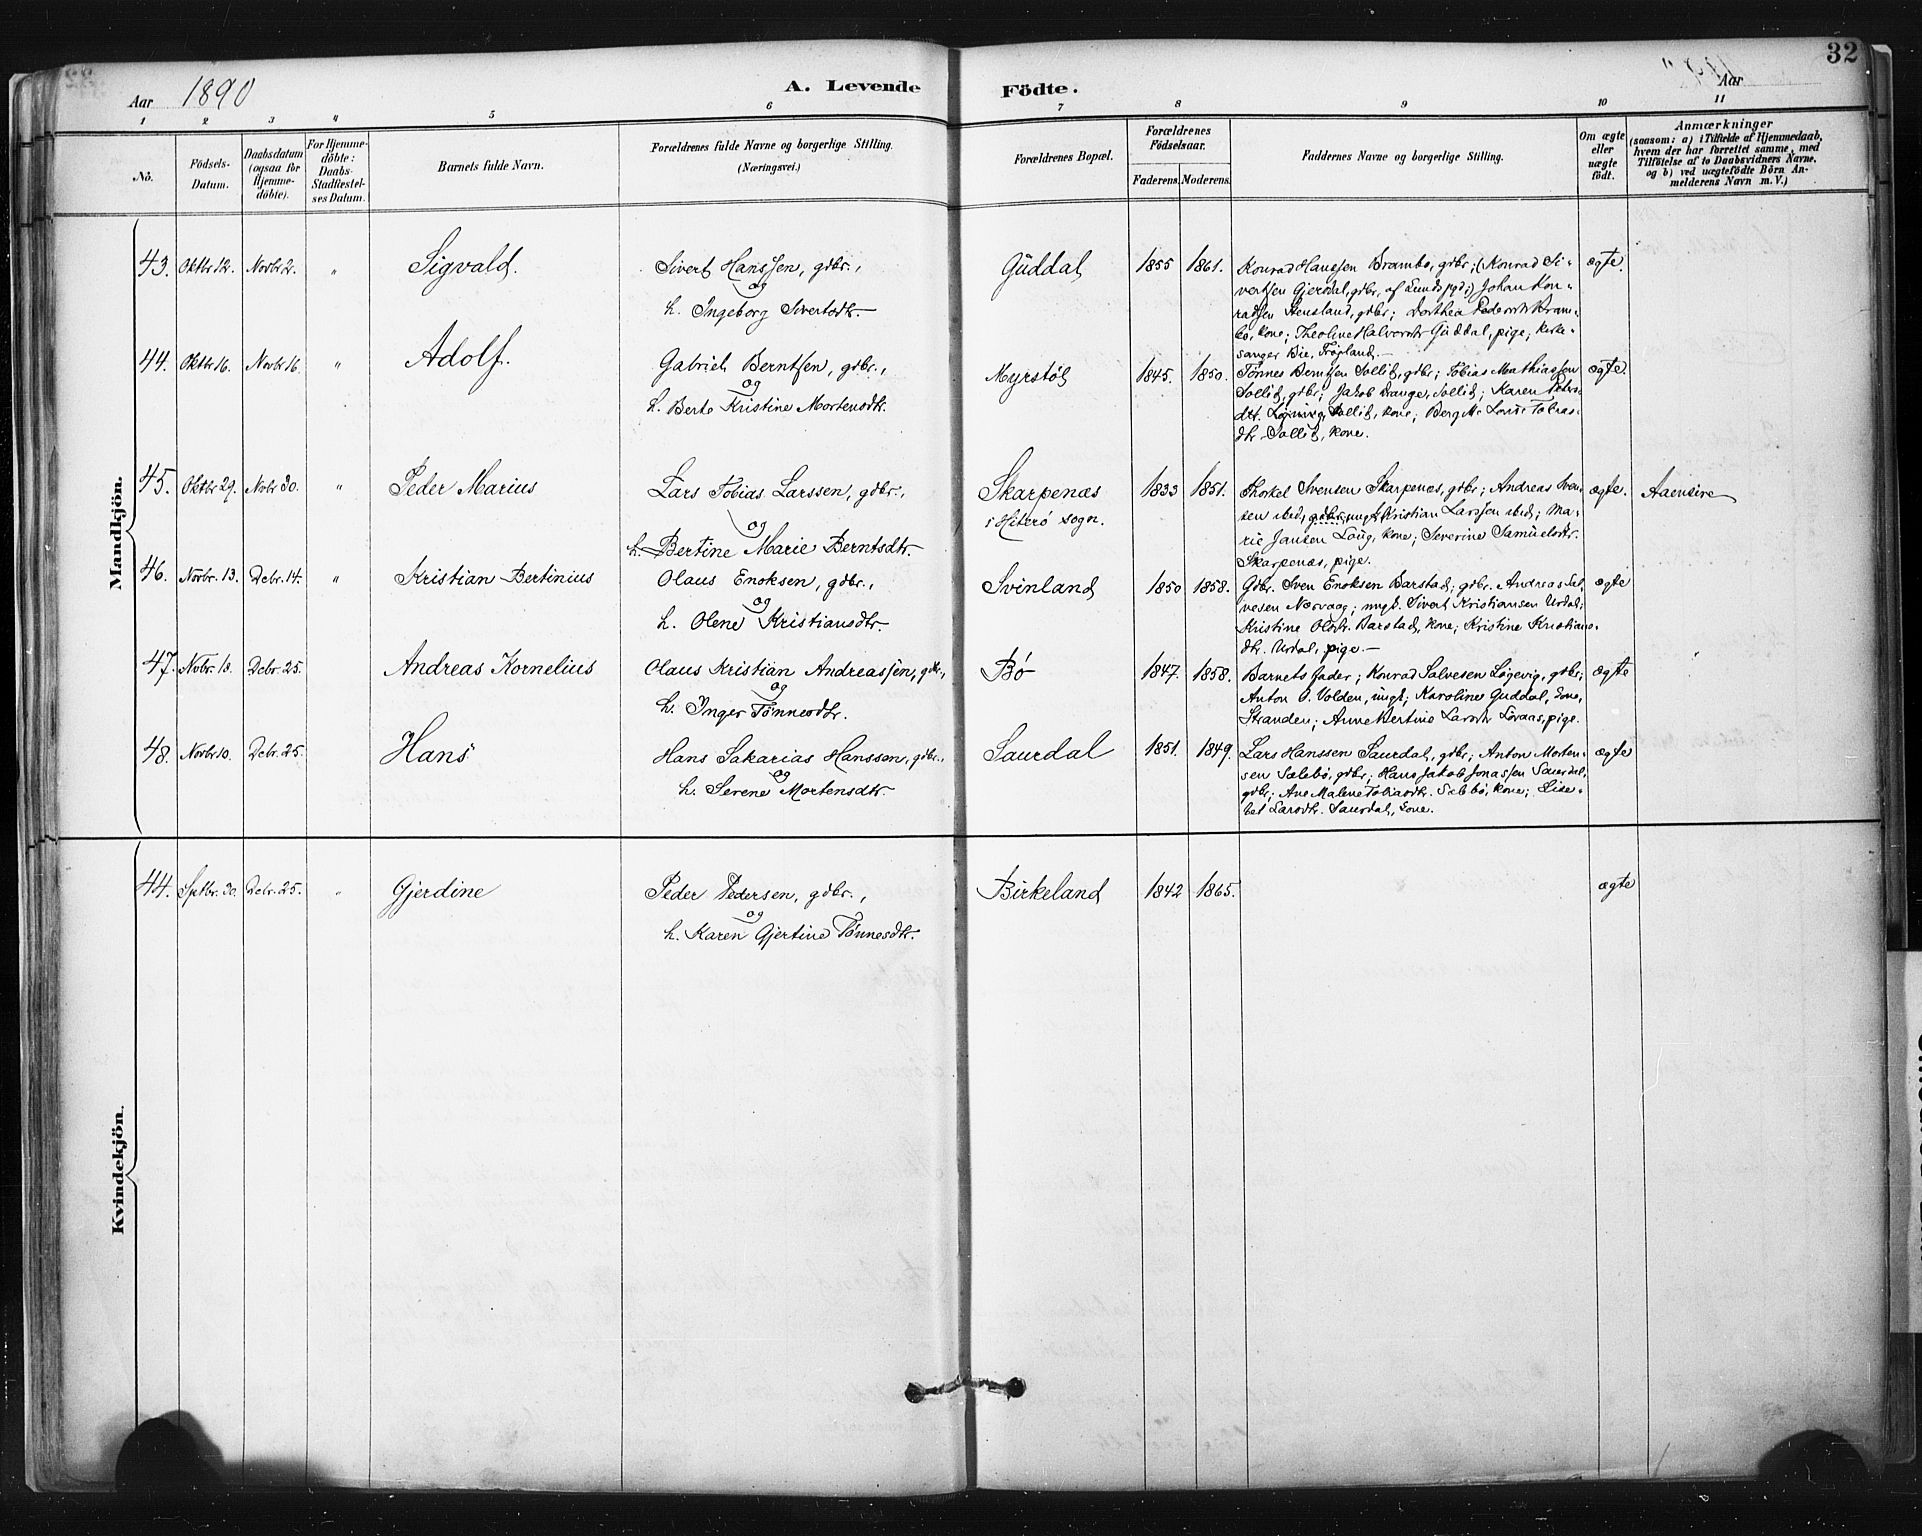 32
Aar 1890
A. Levende Födte.
Aar
1 2 3 " 5 6 7 8 9 10 11
Nö.
Födsels-
Datum.
Daabsdatum
(ogsaa for
Hjemme-
döbte).
For Hjemme-
döbte:
Daabs-
Stadfæstel-
ses Datum.
Barnets fulde Navn.
Forældrenes fulde Navne og borgerlige Stilling.
(Næringsvei.)
Forældrenes Bopæl.
Forældrenes
Födselsaar.
Faderens. Moderens.
Faddernes Navne og borgerlige Stilling.
Om ægte
eller
uægte
födt.
Anmærkninger
(saasom: a) i Tilfælde af Hjemmedaab,
hvem der har forrettet samme, med
Tilföielse af to Daabsvidners Navne,
og b) ved uægtefödte Börn An-
melderens Navn m. V.)
Mandkjön.
43. Oktbr 12. Novbr 2. " Sigvald.
Sivert Hanssen, gdbr.,
og
h. Ingeborg Sivertsdtr.
Guddal 1855 1861.
Konrad Hanssen Brambo, gdbr; (Konrad Si-
vertsen Gjersdal, gdbr, af Lunds pgd;) Johan Kon-
radsen Stensland, gdbr; Dorthea Pedersdtr Bram-
bo, kone; Theoline Halvorsdtr Guddal, pige; kirke-
sanger Bie, Frøjland.
ægte.
44. Oktbr 16. Novbr 16. " Adolf.
Gabriel Berntsen, gdbr.,
og
h. Berte Kristine Mortensdtr.
Myrstøl 1845. 1850.
Tønnes Berntsen Sollid, gdbr; Tobias Mathiassen
Sollid, gdbr; Jakob Drange, Sollid; Karen Peders-
dtr. Sollid, kone; Berg Lovise Tobias-
dtr. Sollid, kone.
ægte.
45. Oktbr 29. Novbr 30. " Peder Marius
Lars Tobias Larssen, gdbr.,
og
h. Bertine Marie Berntsdtr.
Skarpenæs
i Hiterø sogn.
1833 1851.
Thorkel Svensen Skarpenæs, gdbr; Andreas Sven-
sen ibid, gdbr, ungk; Kristian Larssen ibid; Ma-
rie Jansen Laug, kone; Severine Samuelsdtr.
Skarpenæs, pige.
ægte. Aaensire
46. Novbr. 13. Dcbr. 14. " Kristian Bertinius
Olaus Enoksen, gdbr.,
og
h. Olene Kristiansdtr.
Svinland 1850 1858.
Gdbr. Sven Enoksen Barstad; gdbr. Andreas Sal-
vesen Nesvaag; ungk. Sivert Kristiansen Urdal;
Kristine Olsdtr. Barstad, kone; Kristine Kristians-
dtr. Urdal, pige.
ægte
47. Novbr. 18. Dcbr. 25. Andreas Kornelius
Olaus Kristian Andreassen, gdbr.,
og
h. Inger Tønnesdtr.
Bø 1847. 1858.
Barnets fader; Konrad Salvesen Løgevig, gdbr;
Anton O. Volden, ungk; Karoline Guddal, kone,
Stranden; Anne Bertine Larsdtr Løvaas, pige.
ægte
48. Novbr 10. Dcbr. 25. Hans
Hans Sakarias Hanssen, gdbr.,
og
h. Serene Mortensdtr.
Saurdal 1851. 1849.
Lars Hanssen Saurdal, gdbr; Anton Morten-
sen Sælebø, gdbr; Hans Jakob Jonassen Saurdal,
gdbr; Ane Malene Tobiasdtr. Sælebø, kone; Lise-
bet Larsdtr. Saurdal, kone.
ægte
Kvindekjön.
44. Sptbr. 30. Dcbr. 25. " Gjerdine
Peder Pedersen, gdbr.,
og
h. Karen Gjertine Tønnesdtr.
Birkeland 1842 1865.
ægte